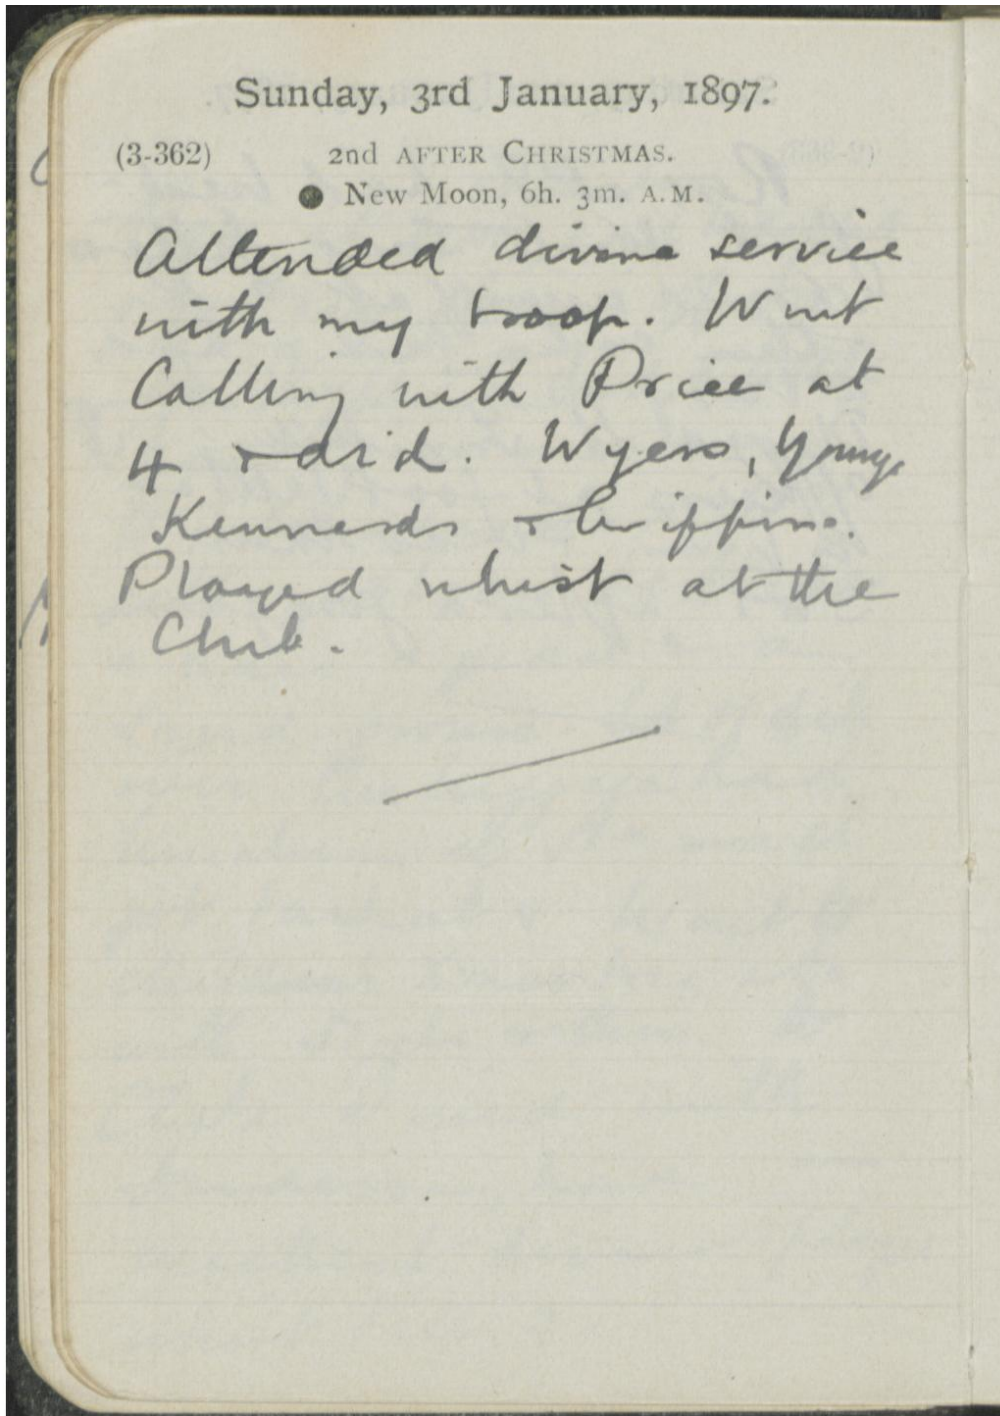 Sunday, 3rd January, 1897.
(3-362) 2nd AFTER CHRISTMAS.
New Moon, 6h. 3m. A.M.
Attended divine service
with my troop. Went
Calling with Price at
4 & did. Wyers, Youngs
Kennards &
Played whist at the
Club.